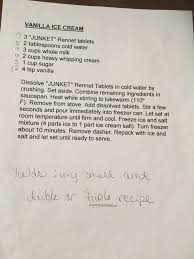 VANILLA ICE CREAM
3 "JUNKET" Rennet tablets
2 tablespoons cold water
3 cups whole milk
2 cups heavy whipping cream
1 cup sugar
tsp vanilla
Dissolve "JUNKET" Rennet Tablets in cold water by
crushing. Set aside. Combine remaining ingredients in
saucepan. Heat while stirring to lukewarm (110°
F). Remove from stove. Add dissolved tablets. Stir a few
seconds and pour immediately into freezer can. Let set at
room temperature until firm and cool. Freeze ice and salt
mixture (4 parts ice to 1 part ice cream salt). Turn freezer
about 10 minutes. Remove dasher. Repack with ice and
salt and let set until ready to serve.
Yields very small amt
double or triple recipe